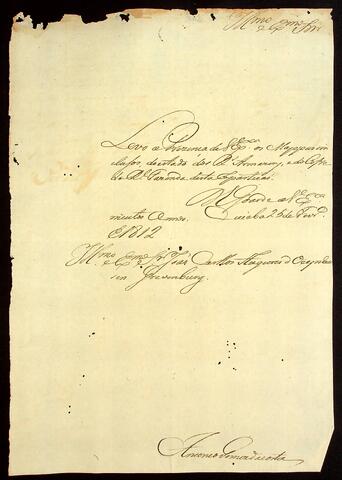 Illmo e Exmo Snr
Levo a Prezença de VExca os Mappas in
cluzos, do estado dos Rs Armazens, e do Cofre
da Rl Fazenda desta Repartição.
Ds Gde de VExca
muitos Annos. Cuiabá 25 de Fevro
de 1812
Illmo e Exmo Snr João Carlos Augusto d'Oeynhau
sen Gravenburg.
Antonio